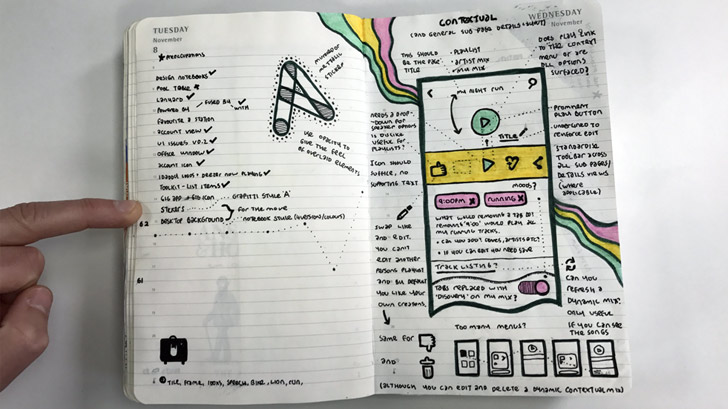 TUESDAY
November
8
* #PRIORITISATIONS
DESIGN NOTEBOOKS ✓
POOL TABLE
LANYARD ✓
POWERED BY FUSED BY ✓ WITH
FAVOURITE A STATION
ACCOUNT VIEW ✓
UI ISSUES V0.2 ✓
OFFICE WINDOW ✓
ACCOUNT ICON ✓
LOADING LOGO / DEEZER NOW PLAYING ✓
TOOLKIT - LIST ITEMS ✓
GIG APP ICON GRAFFITI STYLE 'A'
STICKERS FOR THE MOVE
DESKTOP BACKGROUND NOTEBOOK STYLE
MIRRORED OR METALLIC STICKER
USE OPACITY TO GIVE THE FEEL OF OVERLAID ELEMENTS
62
61
TILE, FRAME, ICONS, SPEECH, BIKE, LION, RUN,
WEDNESDAY
November
CONTEXTUAL
(AND GENERAL SUB-PAGE DETAILS
THIS SHOULD BE THE PAGE TITLE
PLAYLIST
ARTIST MIX
MY MIX
DOES PLAY LINK TO THE CONTEXT MENU OR ARE ALL OPTIONS SURFACED?
MY NIGHT RUN
TITLE
PROMINENT PLAY BUTTON
UNDERLINED TO REINFORCE EDIT
STANDARDISE TOOLBAR ACROSS ALL SUB PAGES / DETAILS VIEWS (WHERE APPLICABLE)
NEEDS A DROP-DOWN FOR OPTIONS
USEFUL FOR PLAYLISTS?
ICON SHOULD SUFFICE, NO SUPPORTING TEXT
MOODS?
9:00PM X
RUNNING X
WHAT WOULD REMOVING A TAG DO?
REMOVING '9:00' WOULD PLAY ALL MY RUNNING TRACKS.
• CAN YOU ADD LOVES, ARTISTS ETC?
• IF YOU CAN EDIT YOU NEED SAVE
TRACK LISTING?
TABS REPLACED WITH 'DISCOVERY' ON MY MIX?
SWAP LIKE AND EDIT. YOU CAN'T EDIT ANOTHER PERSONS PLAYLIST AND BY DEFAULT YOU LIKE YOUR OWN CREATIONS.
SAME FOR
AND
CAN YOU REFRESH A DYNAMIC MIX? ONLY USEFUL IF YOU CAN SEE THE SONGS
TOO MANY MENUS?
(ALTHOUGH YOU CAN EDIT AND DELETE A DYNAMIC CONTEXTUAL MIX)